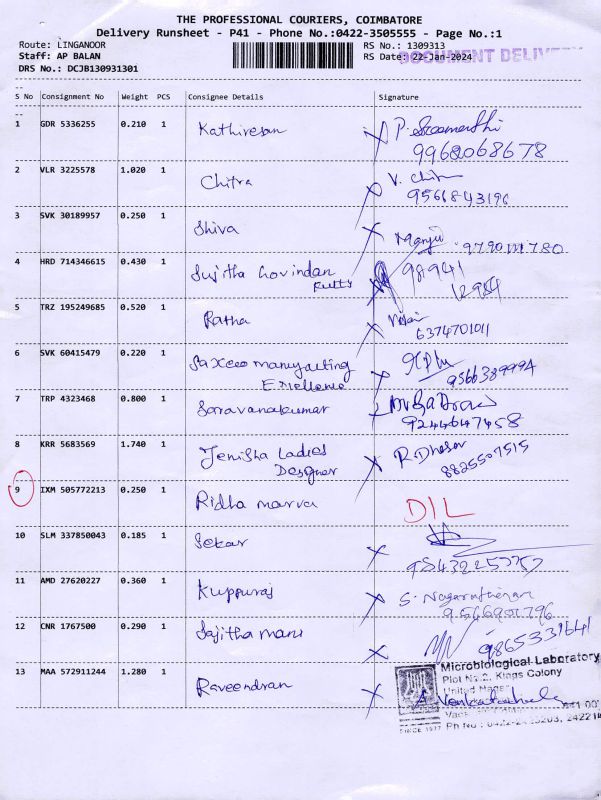 THE PROFESSIONAL COURIERS, COIMBATORE
Delivery Runsheet - P41 - Phone No.:0422-3505555 - Page No.:1
Route: LINGANOOR RS No.: 1309313
Staff: AP BALAN RS Date: 22-Jan-2024 DOCUMENT DELIV
DRS No.: DCJB130931301
S No Consignment No Weight PCS Consignee Details Signature
1 GDR 5336255 0.210 1 Kathiresan
9962068678
2 VLR 3225578 1.020 1 Chitra V. Chitra
9566843196
3 SVK 30189957 0.250 1 Shiva Manju 9790111780
4 HRD 714346615 0.430 1 Sujitha Govindan 98941
Kutty 12984
5 TRZ 195249685 0.520 1 Ratha
6374701011
6 SVK 60415479 0.220 1
956638999A
7 TRP 4323468 0.800 1 Saravanakumar
9244647458
8 KRR 5683569 1.740 1 Jenisha Ladies R. Dhesar
Designer 8825507515
9 IXM 505772213 0.250 1 Ridha marva DIL
10 SLM 337850043 0.185 1 Sekar
11 AMD 27620227 0.360 1 Kuppuraj
9566901796
12 CNR 1767500 0.290 1 Sajitha 9865331641
13 MAA 572911244 1.280 1 Raveendran
Microbiological Laboratory
Plot No.2, Kings Colony
United Nagar
SINCE 1977